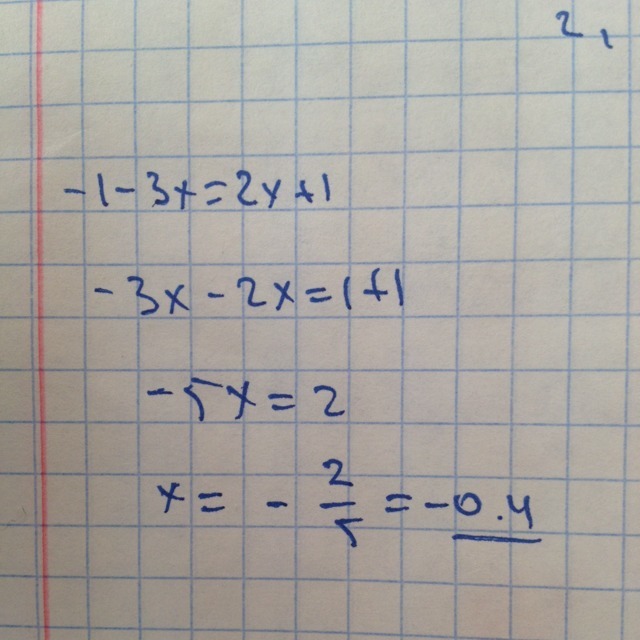 2,
-1-3x=2x+1
-3x-2x=1+1
-5x=2
x= -2/5 = -0.4